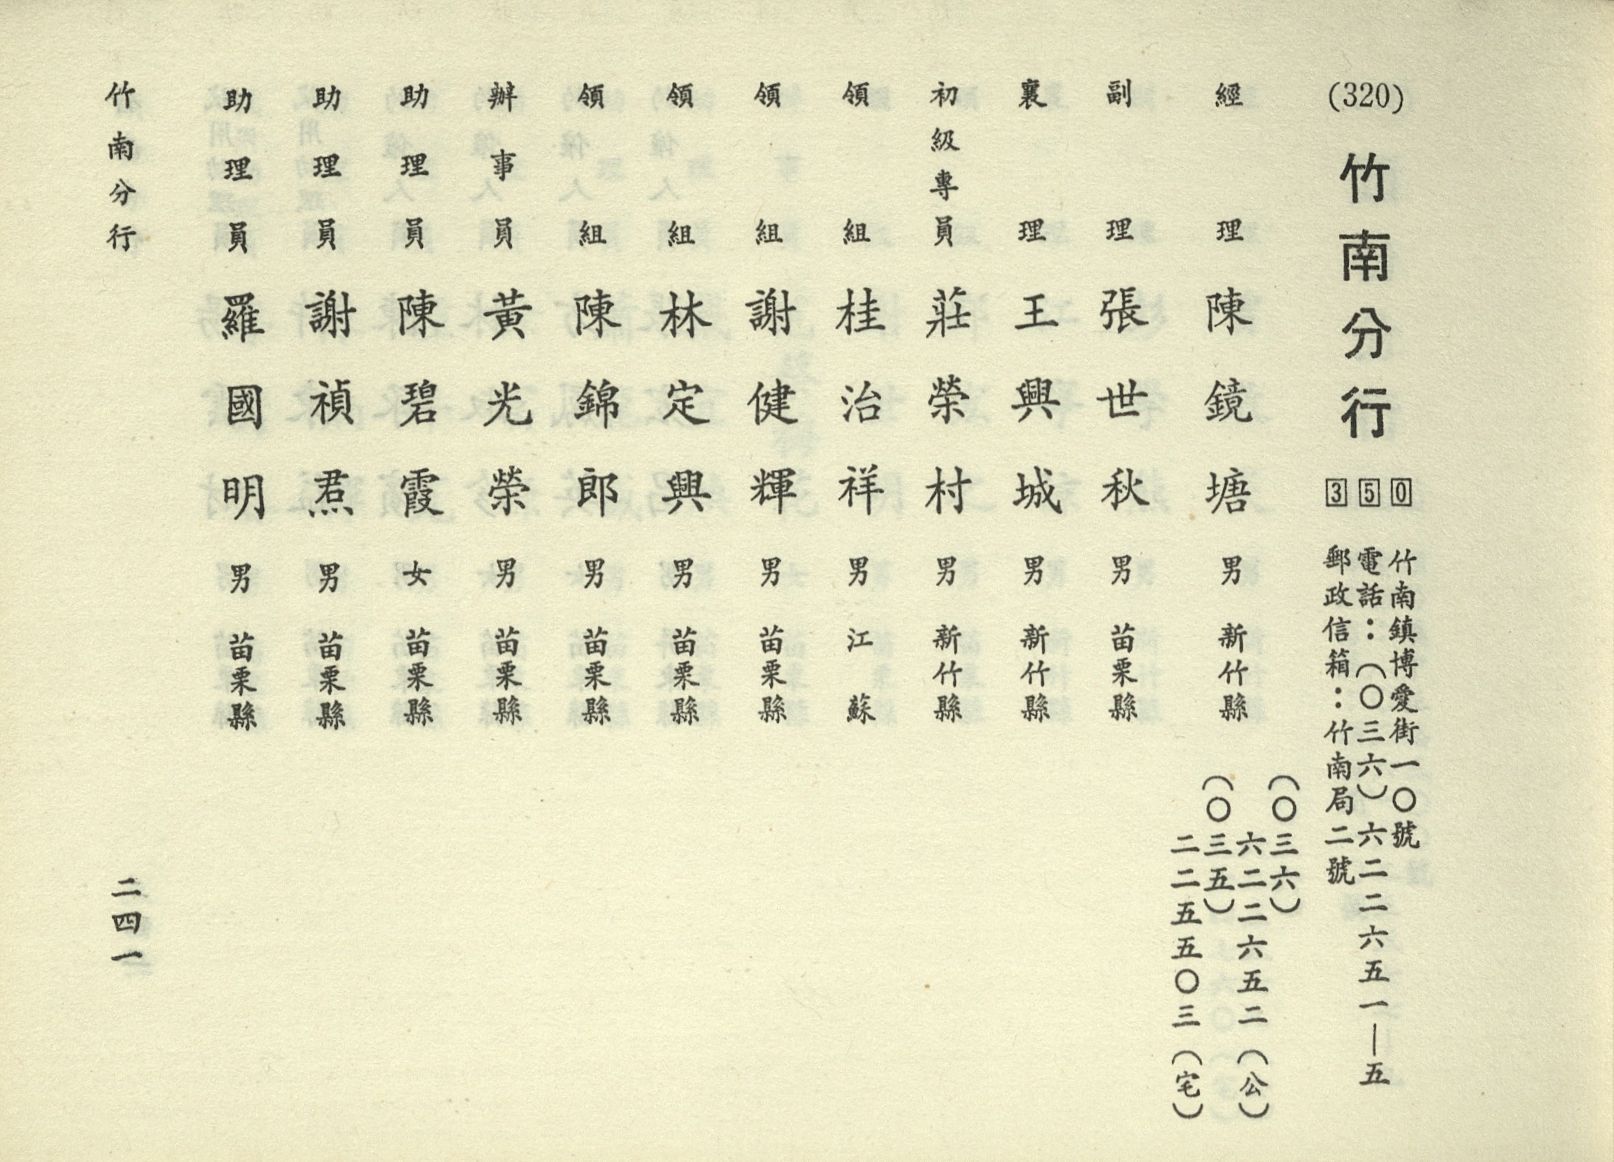 (320) 竹南分行 350
竹南鎮博愛街一〇號
電話：（〇三六）六二二六五一—五
郵政信箱：竹南局二號
經理 陳鏡塘 男 新竹縣
（〇三六）
六二二六五二（公）
（〇三五）
二二五五〇三（宅）
副理 張世秋 男 苗栗縣
襄理 王興城 男 新竹縣
初級專員 莊榮村 男 新竹縣
領組 桂治祥 男 江蘇
領組 謝健輝 男 苗栗縣
領組 林定興 男 苗栗縣
領組 陳錦郎 男 苗栗縣
辦事員 黃光榮 男 苗栗縣
助理員 陳碧霞 女 苗栗縣
助理員 謝禎焄 男 苗栗縣
助理員 羅國明 男 苗栗縣
竹南分行
二四一